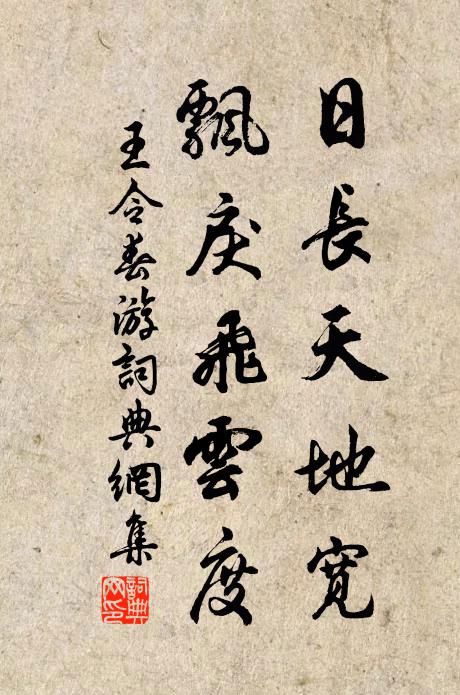 日長天地寬
飄戾飛雲度
王令春游詞典網集
詞典